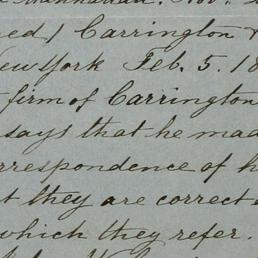 Manhattan. Nov.
ned) Carrington &
New York Feb. 5. 18
firm of Carrington
says that he mad
rrespondence of h
t they are correct
which they refer.